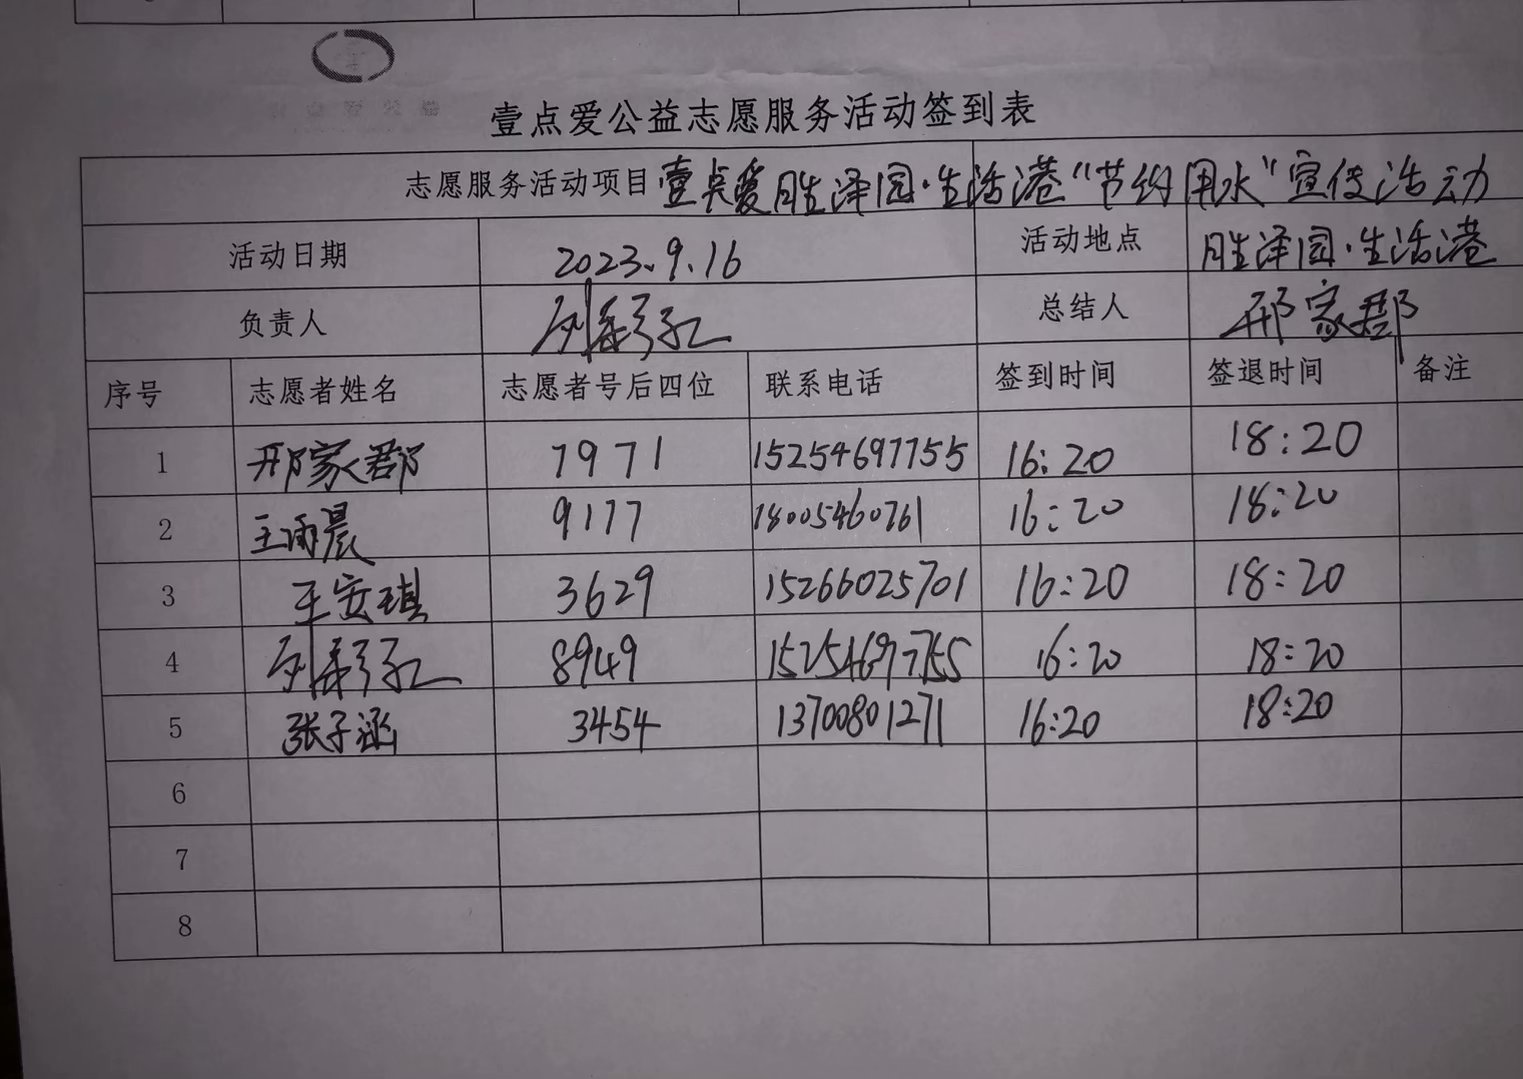 壹点爱公益志愿服务活动签到表
志愿服务活动项目 壹点爱胜泽园·生活港“节约用水”宣传活动
活动日期 2023.9.16 活动地点 胜泽园·生活港
负责人 刘彩红 总结人 邢家郡
序号 志愿者姓名 志愿者号后四位 联系电话 签到时间 签退时间 备注
1 邢家郡 7971 15254697755 16:20 18:20
2 王雨晨 9177 18005460761 16:20 18:20
3 王安琪 3629 15266025701 16:20 18:20
4 刘彩红 8949 15254697755 16:20 18:20
5 张子涵 3454 13700801271 16:20 18:20
6
7
8